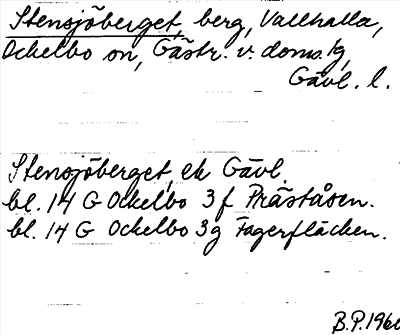 Stensjöberget, berg, Vallhalla,
Ockelbo sn, Gästr. v. doms. tg,
Gävl. l.
Stensjöberget, ek Gävl.
bl. 14 G Ockelbo 3 f Präståsen.
bl. 14 G Ockelbo 3 g Fagerfläcken.
B.P. 196